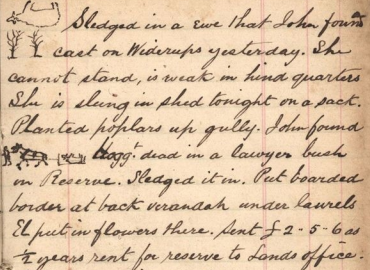 Sledged in a ewe that John found
cast on Widerups yesterday. She
cannot stand, is weak in hind quarters
She is slung in shed tonight on a sack.
Planted poplars up gully. John found
Hogg.t dead in a lawyer bush
on Reserve. Sledged it in. Put boarded
border at back verandah under laurels
El put in flowers there. Sent £2-5-6 as
½ years rent for reserve to Lands office.